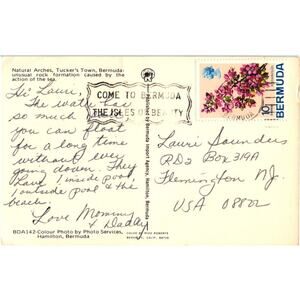 Natural Arches, Tucker's Town, Bermuda:
unusual rock formation caused by the
action of the sea.
Hi Lauri,
The water has
so much
you can float
for a long time
without ever
going down. They
have 1 inside pool,
1 outside pool & the
beach
Love Mommy
& Daddy
BDA142-Colour Photo by Photo Services,
Hamilton, Bermuda
COME TO BERMUDA
THE ISLES OF BEAUTY
BERMUDA
10
Lauri Saunders
RD2 Box 319A
Flemington NJ.
USA 08822